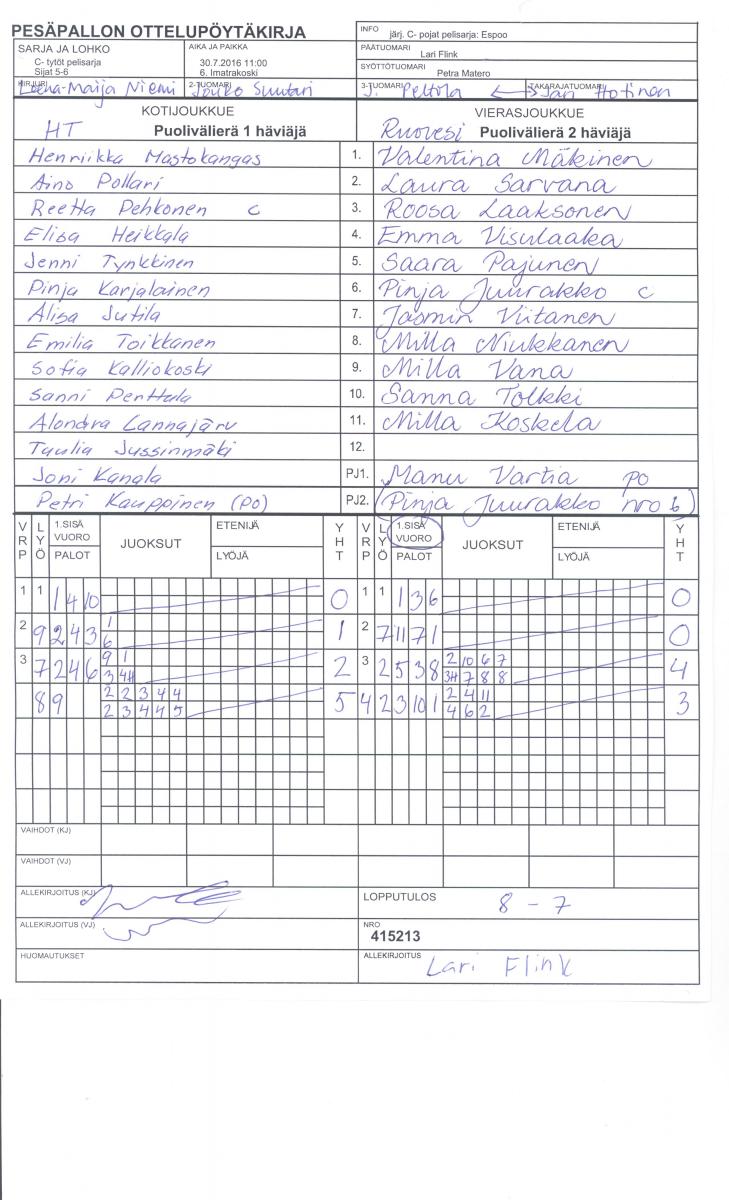 PESÄPALLON OTTELUPÖYTÄKIRJA
INFO järj. C- pojat pelisarja: Espoo
SARJA JA LOHKO
C- tytöt pelisarja
Sijat 5-6
AIKA JA PAIKKA
30.7.2016 11:00
6. Imatrakoski
PÄÄTUOMARI
Lari Flink
SYÖTTÖTUOMARI
Petra Matero
KIRJURI Leena-Maija Niemi
2-TUOMARI Jouko Suutari
3-TUOMARI J. Peltola
TAKARAJATUOMARI Jari Hotinen
KOTIJOUKKUE
HT Puolivälierä 1 häviäjä
VIERASJOUKKUE
Ruovesi Puolivälierä 2 häviäjä
Henriikka Mastokangas 1. Valentina Mäkinen
Aino Pollari 2. Laura Sarvana
Reetta Pehkonen c 3. Roosa Laaksonen
Elisa Heikkala 4. Emma Visulaaka
Jenni Tynkkinen 5. Saara Pajunen
Pinja Karjalainen 6. Pinja Juurakko c
Alisa Jutila 7. Jasmin Viitanen
Emilia Toikkanen 8. Milla Niukkanen
Sofia Kalliokoski 9. Milla Vana
Sanni Penttula 10. Sanna Tolkki
Alondra Lannajärv 11. Milla Koskela
Tuulia Jussinmäki 12.
Joni Kanala PJ1. Manu Vartia PO
Petri Kauppinen (PO) PJ2. (Pinja Juurakko nro 6)
VRP LYÖ 1.SISÄ VUORO PALOT JUOKSUT ETENIJÄ LYÖJÄ YHT VRP LYÖ 1.SISÄ VUORO PALOT JUOKSUT ETENIJÄ LYÖJÄ YHT
1 1 1 4 10 0 1 1 1 3 6 0
2 9 2 4 3 1 1 2 7 11 7 1 0
6
3 7 2 4 6 9 1 2 3 2 5 3 8 2 10 6 7 4
3 4H 3H 7 8 8
8 9 2 2 3 4 4 5 4 2 3 10 1 2 4 11 3
2 3 4 4 5 4 6 2
VAIHDOT (KJ)
VAIHDOT (VJ)
ALLEKIRJOITUS (KJ)
LOPPUTULOS 8 - 7
ALLEKIRJOITUS (VJ)
NRO
415213
HUOMAUTUKSET
ALLEKIRJOITUS Lari Flink